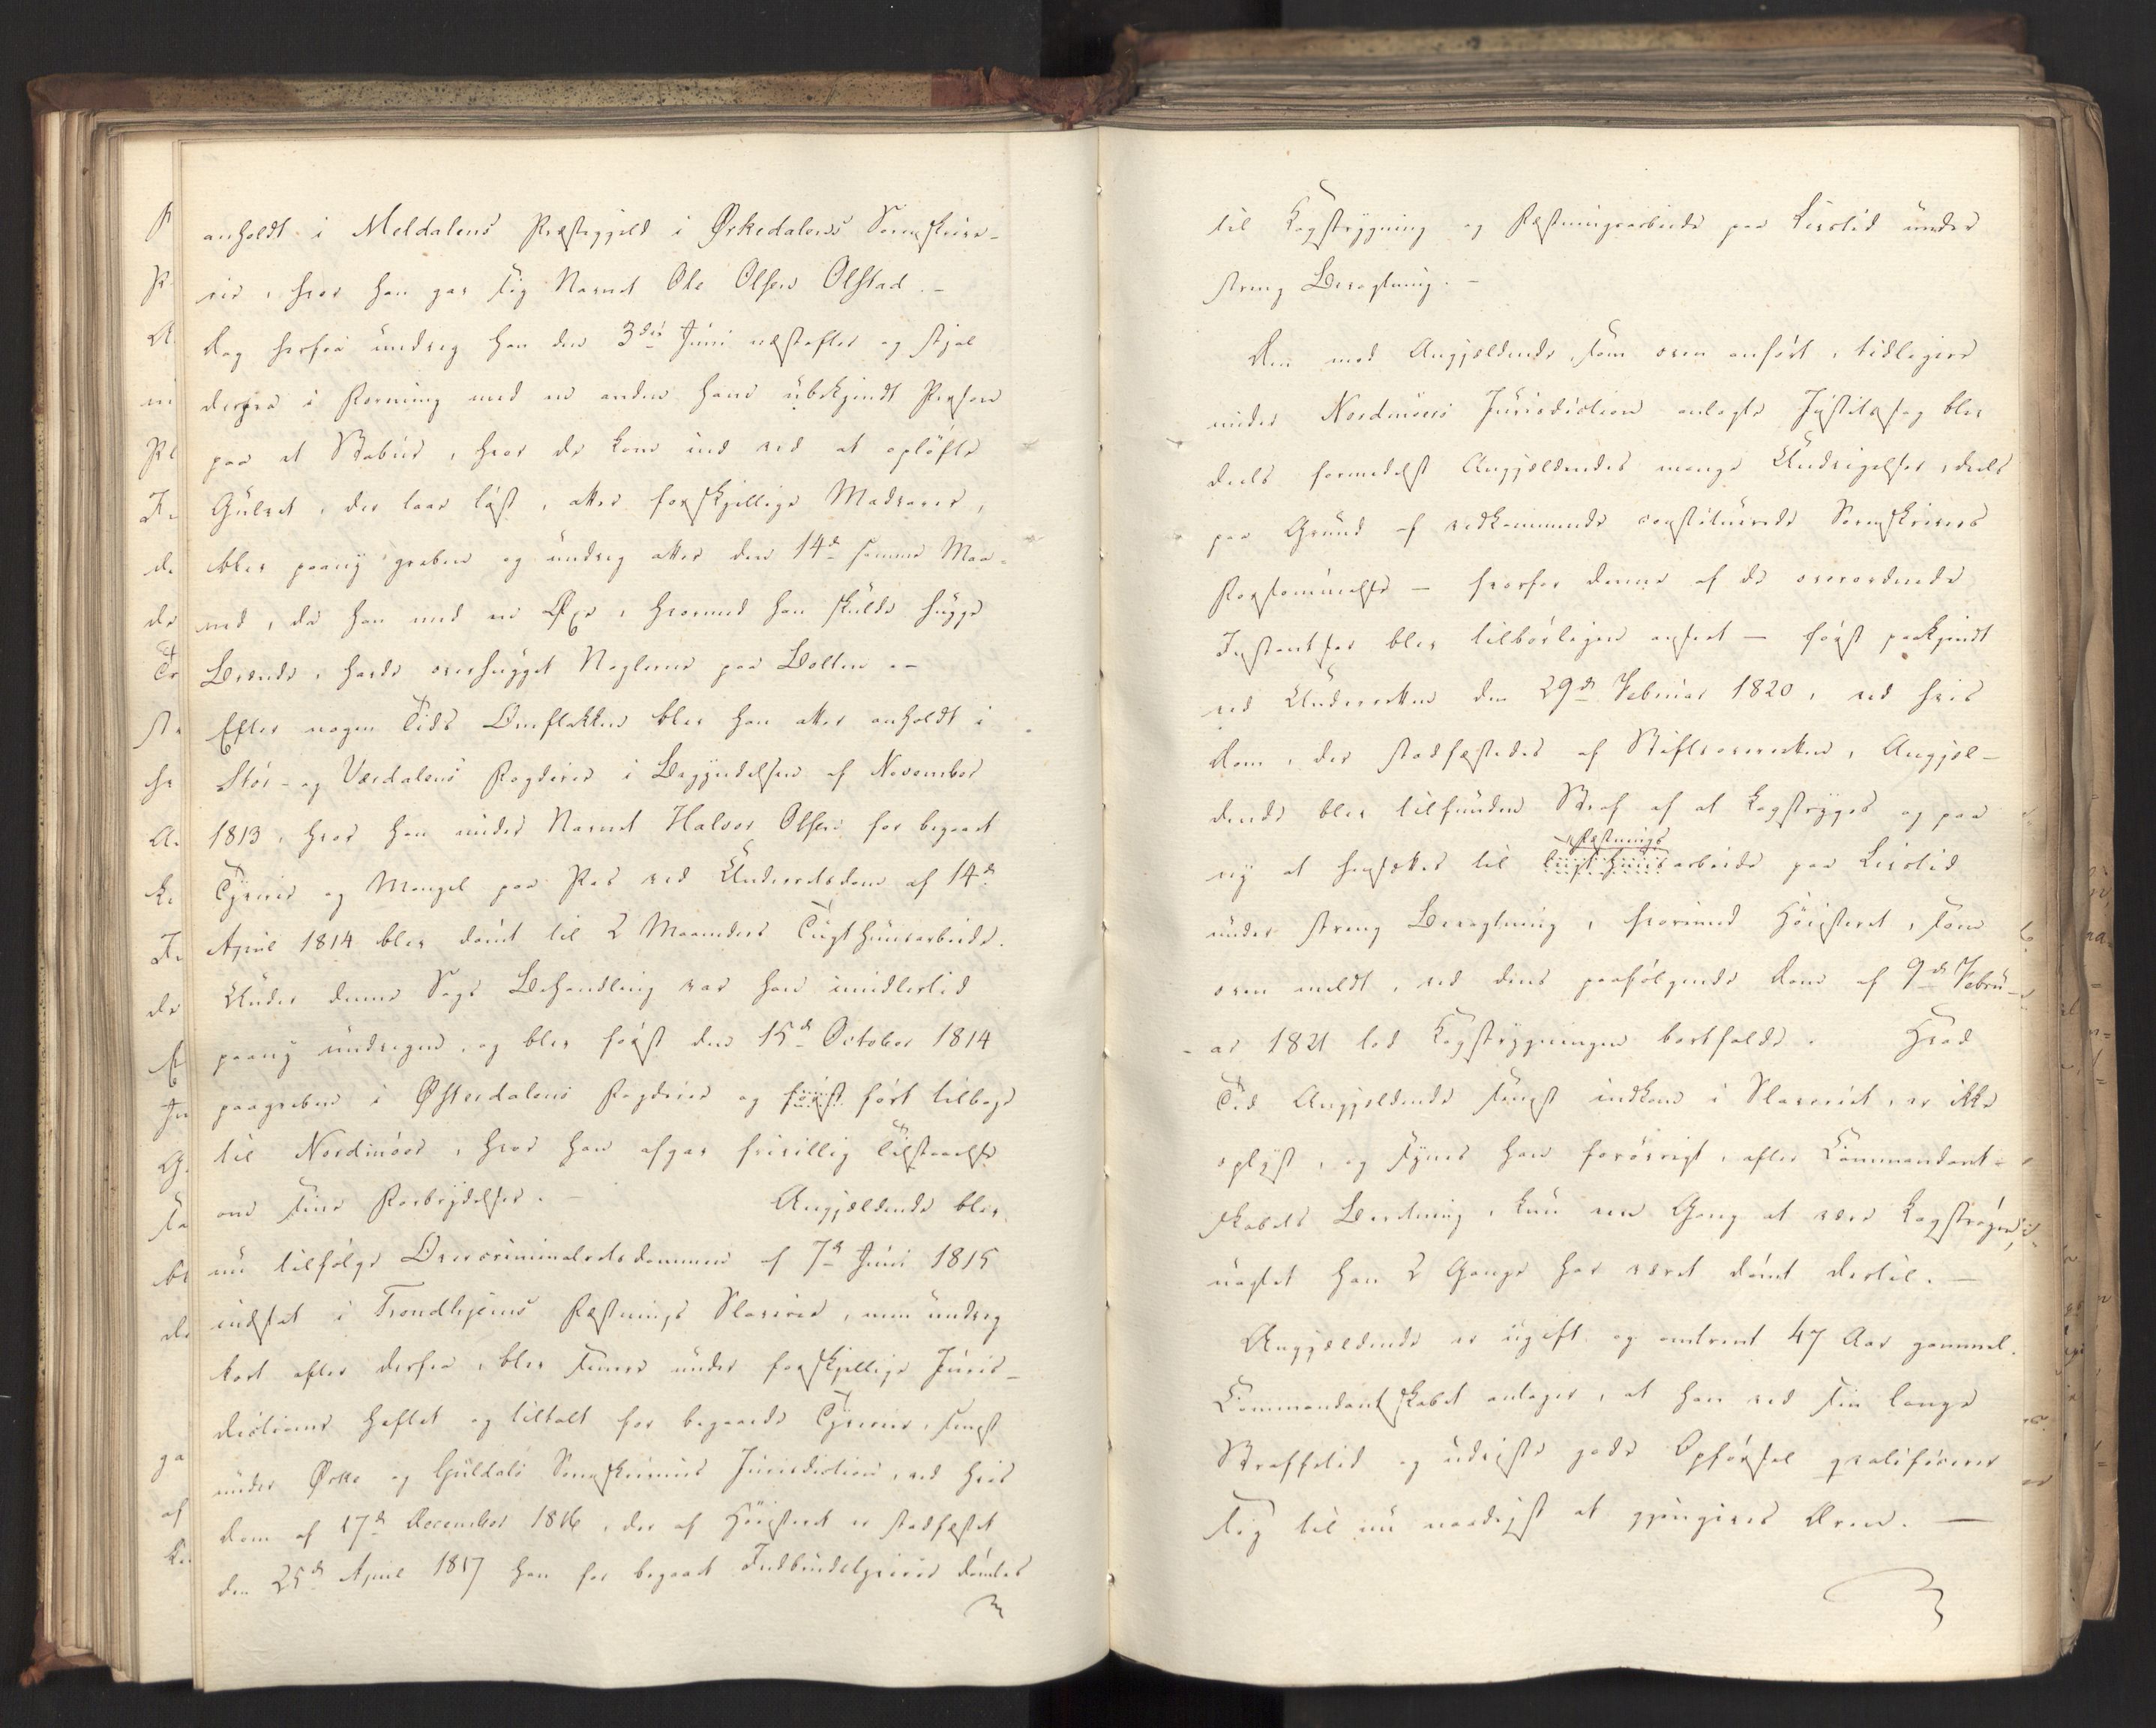 anholdt i Meldalens Præstegjeld i Ørkedalens Sorenskrive-
rie, hvor han gav sig Navnet Ole Olsen Olstad. -
Dog herfra undveg han den 3die Juni næstefter og stjal
derpaa i Forening med en anden ham ubekjendt Person
paa et Stabur, hvor de kom ind ved at opløfte
Gulvet, der laae løst, atter forskjellige Madvarer,
blev paany greben og undveg atter den 14de samme Maa-
ned, da han med en Øxe, hvormed han skulde hugge
Brænde, havde overhugget Naglerne paa Bolten. -
Efter nogen Tids Omflakken blev han atter anholdt i
Stør- og Værdalens Fogderie i Begyndelsen af November
1813, hvor han under Navnet Halvor Olsen for begaaet
Tyverie og Mangel paa Pas ved Underretsdom af 14de
April 1814 blev dømt til 2 Maaneders Tugthuusarbeide.
Under denne Sags Behandling var han imidlertid
paany undvegen, og blev først den 15de October 1814
paagreben i Østerdalens Fogderie og først ført tilbage
til Nordmøer, hvor han afgav frivillig Tilstaaelse
om sine Forbrydelser. - Angjældende blev
nu tilfølge Overcriminalretsdommen af 7de Juni 1815
indsat i Trondhjems Fæstnings Slaverie, men undveg
kort efter derfra, blev senere under forskjellige Juris-
dictioner heftet og tiltalt for begaaede Tyverier, senest
under Ørke og Guldals Sorenskriveries Jurisdiction, ved hvis
Dom af 17de December 1816, der af Høiesteret er stadfæstet
den 25de April 1817 han for begaaet Indbrudstyverie dømtes
til Kagstrygning og Fæstningsarbeide paa Livstid under
streng Bevogtning. -
Den mod Angjældende, som oven anført, tidligere
under Nordmøers Jurisdiction anlagte Justitssag blev
deels formedelst Angjældendes mange Undvigelser, deels
paa Grund af vedkommende constituerede Sorenskrivers
Forsømmelse - hvorfor denne af de overordnede
Instantser blev tilbørligen anseet - først paakjendt
ved Underretten den 29de Februar 1820, ved hvis
Dom, der stadfæstedes af Stiftsoverretten, Angjæl-
dende blev tilfunden Straf af at kagstryges og paa
Fæstnings
ny at hensættes til Tugthuusarbeide paa Livstid
under streng Bevogtning, hvorimod Høiesteret, som
oven meldt, ved dens paafølgende Dom af 9de Febru-
ar 1821 lod Kagstrygningen bortfalde. Hvad
Tid Angjældende senest indkom i Slaveriet, er ikke
oplyst, og synes han forøvrigt, efter Commandant-
skabets Beretning, kun een Gang at være kagstrøgen,
uagtet han 2 Gange har været dømt dertil. -
Angjældende er ugift og omtrent 47 Aar gammel.
Commandantskabet antager, at han ved sin lange
Straffetid og udviste gode Opførsel qvalificerer
sig til nu naadigst at gjengives Æren. -